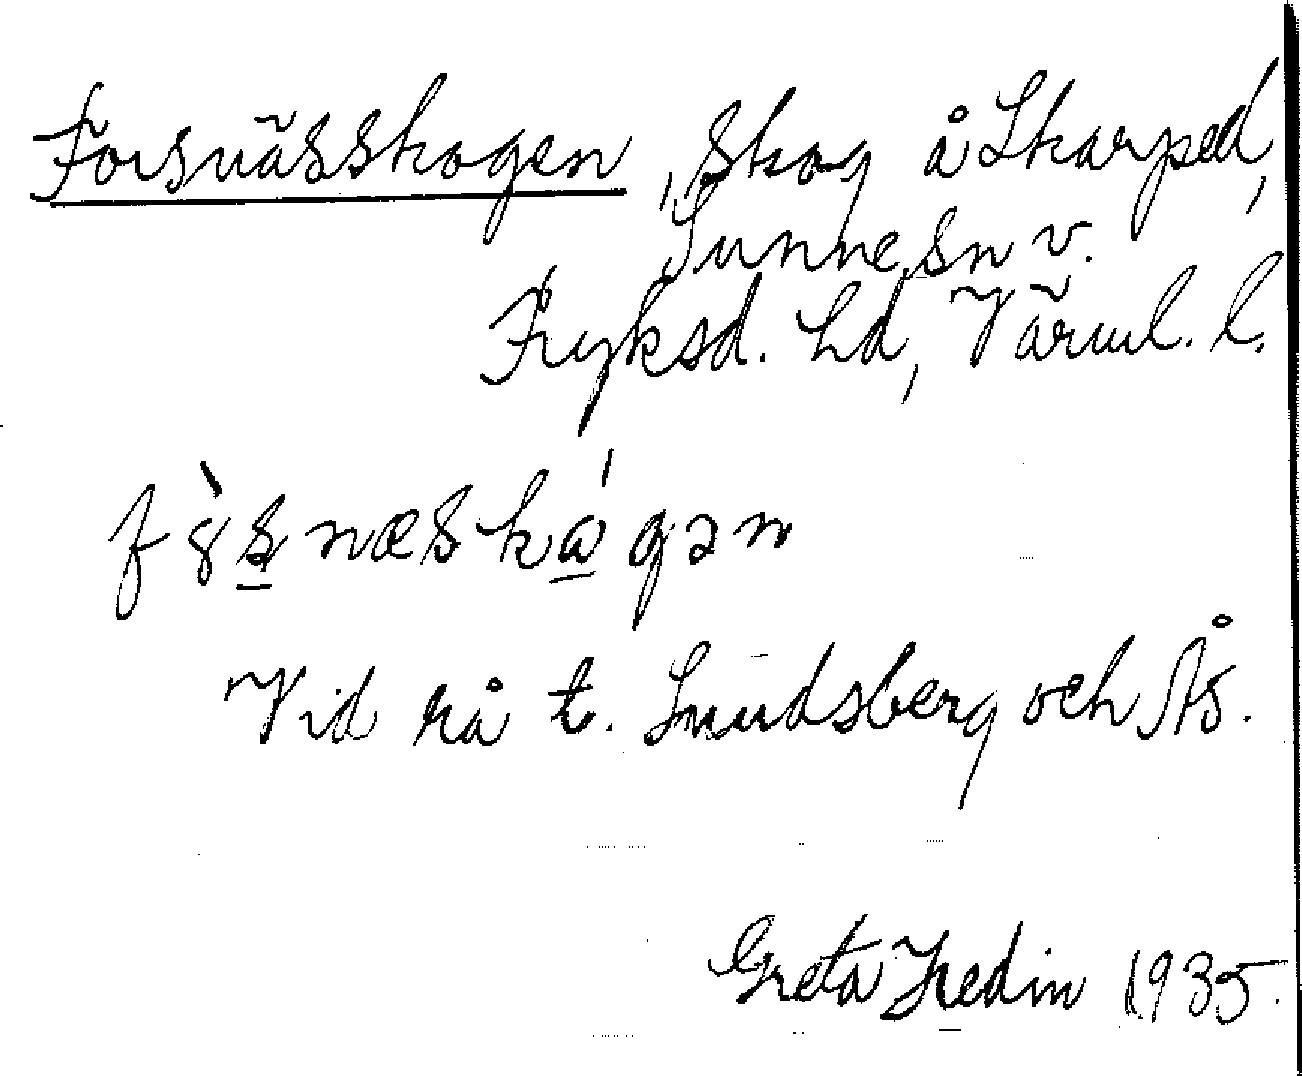 Forsnässkogen, skog å Skarped,
Sunne sn v.
Fryksd. hd, Värml. l.
Vid rå t. Sundsberg och Ås.
Greta Hedin 1935.